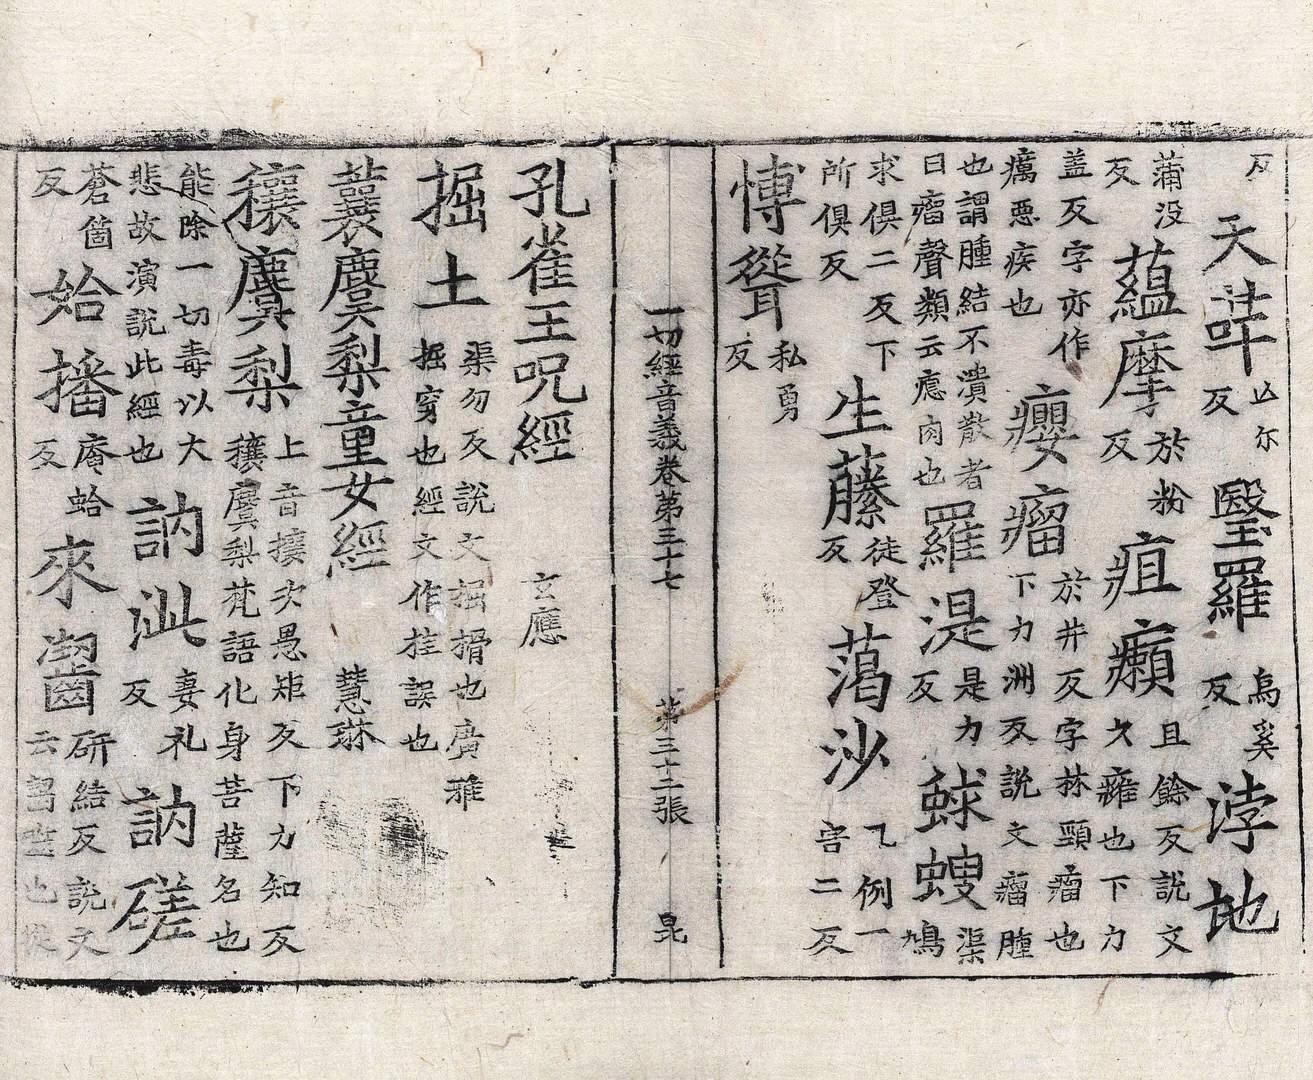 反天哶亾尔反瞖羅烏奚反浡地
蒲没反蘊摩於粉反疽癩且餘反説文久癕也下力
盖反字亦作癘惡疾也癭瘤於井反字林頸瘤也下力洲反説文瘤腫
也謂腫結不潰散者曰瘤聲類云瘜肉也羅湜是力反蛷螋渠鳩
求俱二反下所俱反生藤徒登反萿沙乙例一害二反
慱聳私勇反
一切經音義卷第三十七 第三十二張 昆
孔雀王呪經 玄應
掘土渠勿反説文掘搰也廣雅掘穿也經文作挂誤也
蘘麌梨童女經 慧琳
穰麌梨上音攘次愚矩反下力知反穰麌梨梵語化身菩薩名也
能除一切毒以大悲故演説此經也訥泚妻礼反訥磋
蒼箇反始播庵蛤反來齧研結反説文云噐也從